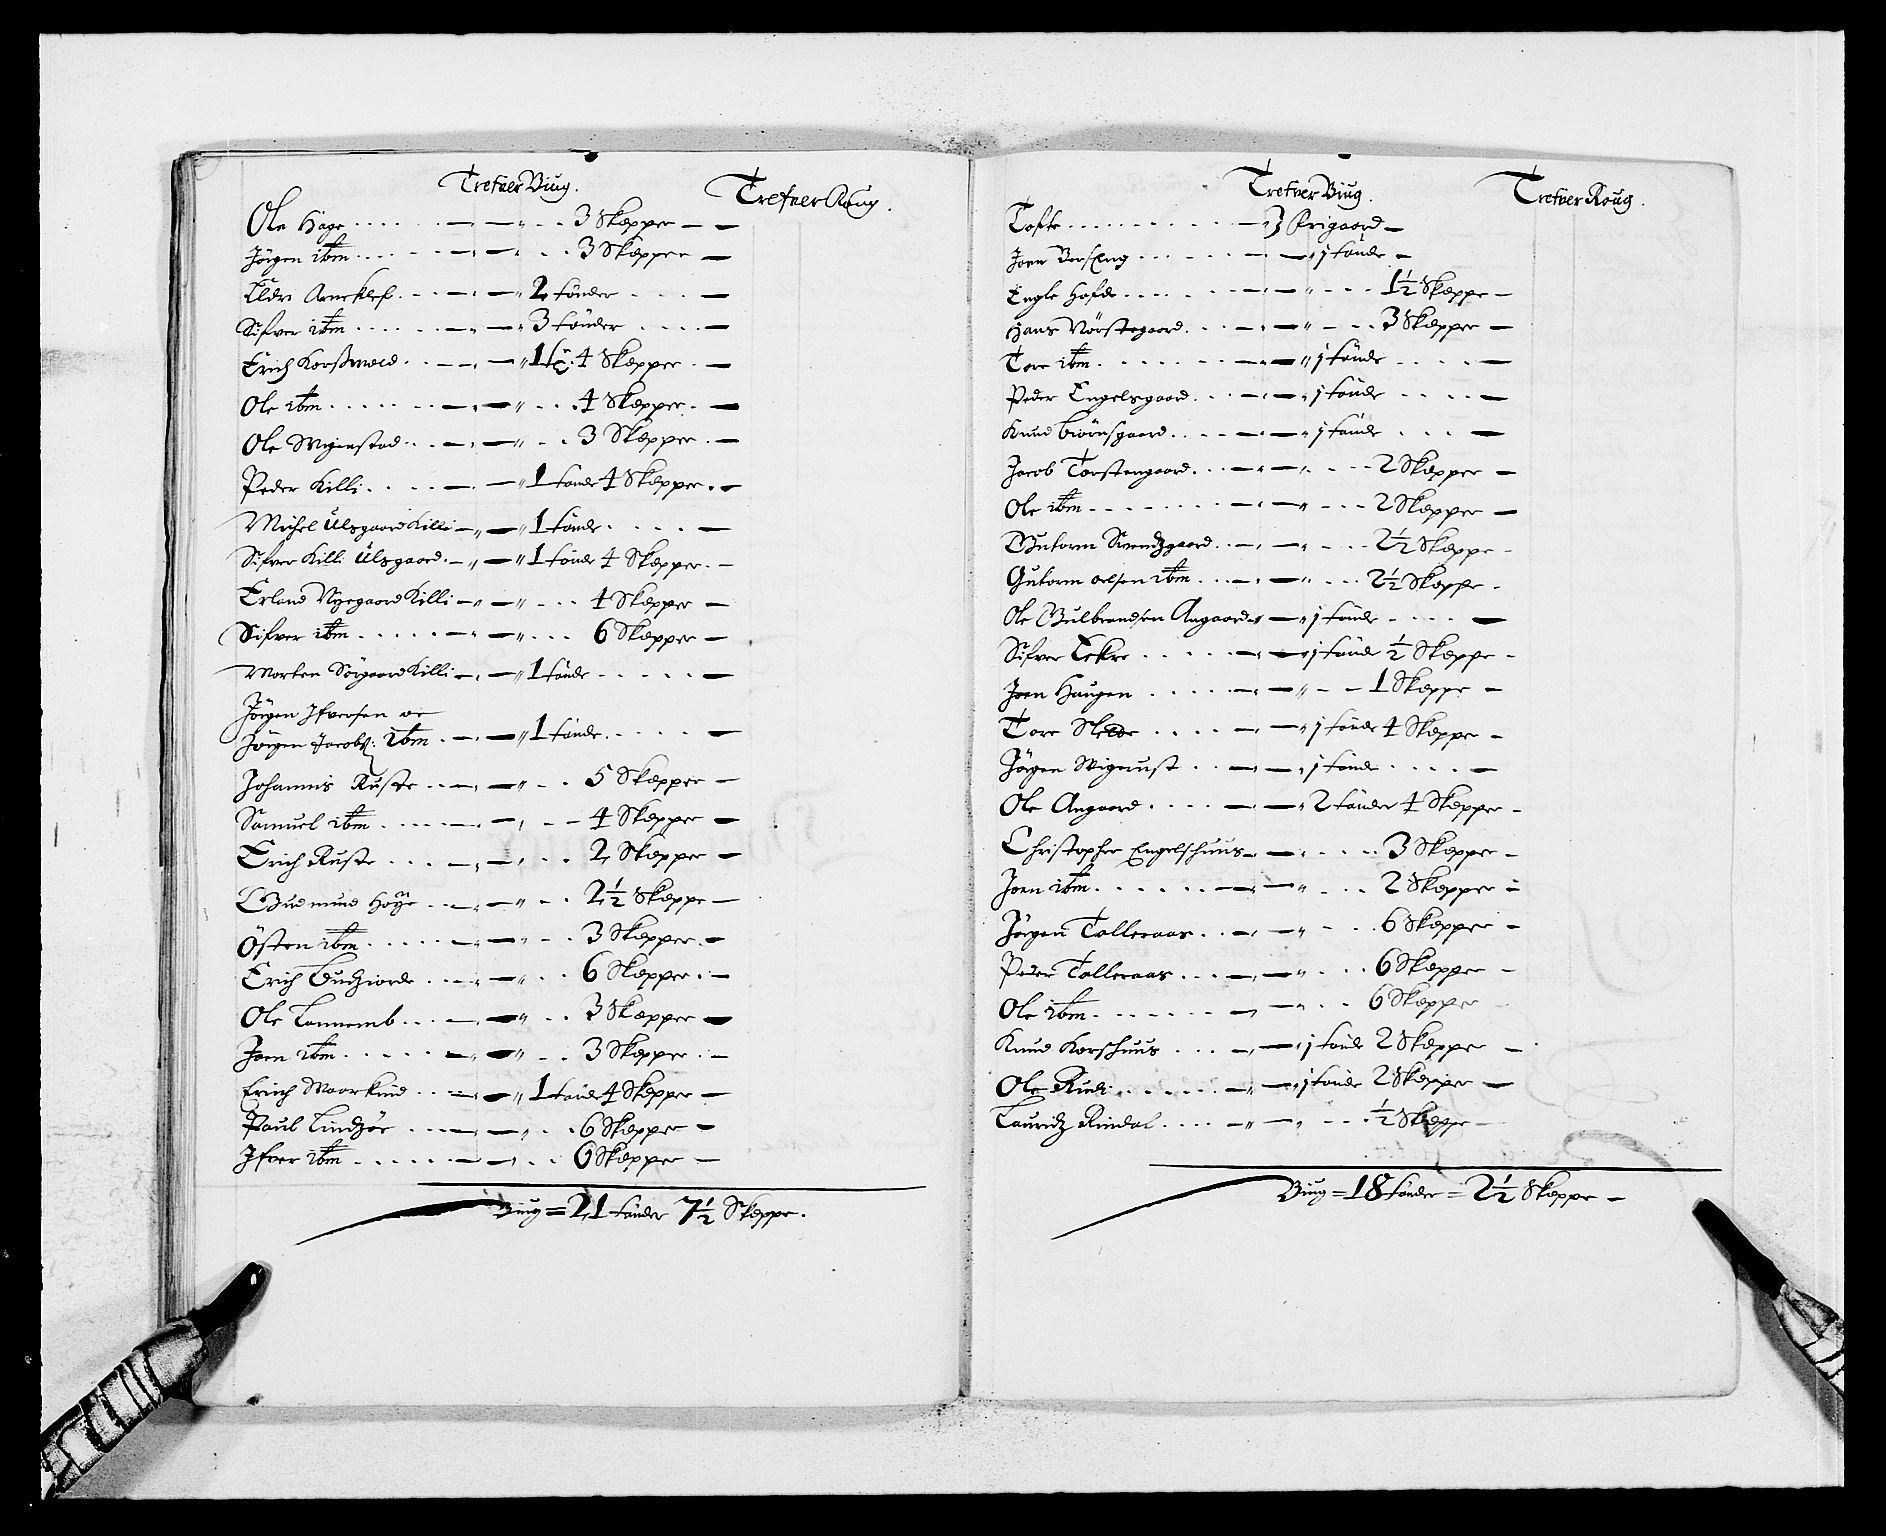 Trefuer Biug. Trefuer Roug.
Ole Hage 3 Skepper
Jörgen ibm 3 Skepper
Eldri Arneklef 2 tönder
Sifver ibm 3 tönder
Erich Korßmoed 1 tö: 4 Skepper
Ole ibm 4 Skepper
Ole Wigenstad 3 Skepper
Peder Killi 1 tönde 4 Skepper
Michel Ulsgaard Killi 1 tönde
Sifver Killi Ulsgaard 1 tönde 4 Skepper
Erland Nyegaard Killi 4 Skepper
Sifver ibm 6 Skepper
Morten Sörgaard Killi 1 tönde
Jörgen Ifversen oc
Jörgen Jacobß: ibm 1 tönde
Johannis Ruste 5 Skepper
Samuel ibm 4 Skepper
Erich Ruste 2 Skepper
Gudmund Höÿe 2½ Skeppe
Östen ibm 3 Skepper
Erich 6 Skepper
Ole Tonnemb 3 Skepper
Joen ibm 3 Skepper
Erich 1 tönde 4 Skepper
Paul Lindsöe 6 Skepper
Ifver ibm 6 Skepper
Biug = 21 tönder 7½ Skeppe.
Trefuer Biug. Trefuer Roug.
Tofte 3 frigaard
Joen 1 tönde
Engle Hofde 1½ Skeppe
Hans Nörstegaard 3 Skepper
Tore ibm j tönde
Peder Engelsgaard j tönde
Knud Biörnsgaard j tönde
Jacob Torstengaard 2 Skepper
Ole ibm 2 Skepper
Gutorm Svendsgaard 2½ Skeppe
Gutorm Oelsen ibm 2½ Skeppe
Ole Gulbrandsen Angaard j tönde
Sifver Eckre j tönde ½ Skeppe
Joen Haugen 1 Skeppe
Tore j tönde 4 Skeppe
Jörgen Wigerust j tönde
Ole Angaard 2 tönder 4 Skepper
Christopher Engelschuus 3 Skepper
Joen ibm 2 Skepper
Jörgen Tolleraas 6 Skepper
Peder Tolleraas 6 Skepper
Ole ibm 6 Skepper
Knud Korschuus j tönde 2 Skepper
Ole Rudi j tönde 2 Skepper
Lauridz Rindal ½ Skeppe
Biug = 18 tönder = 2½ Skeppe